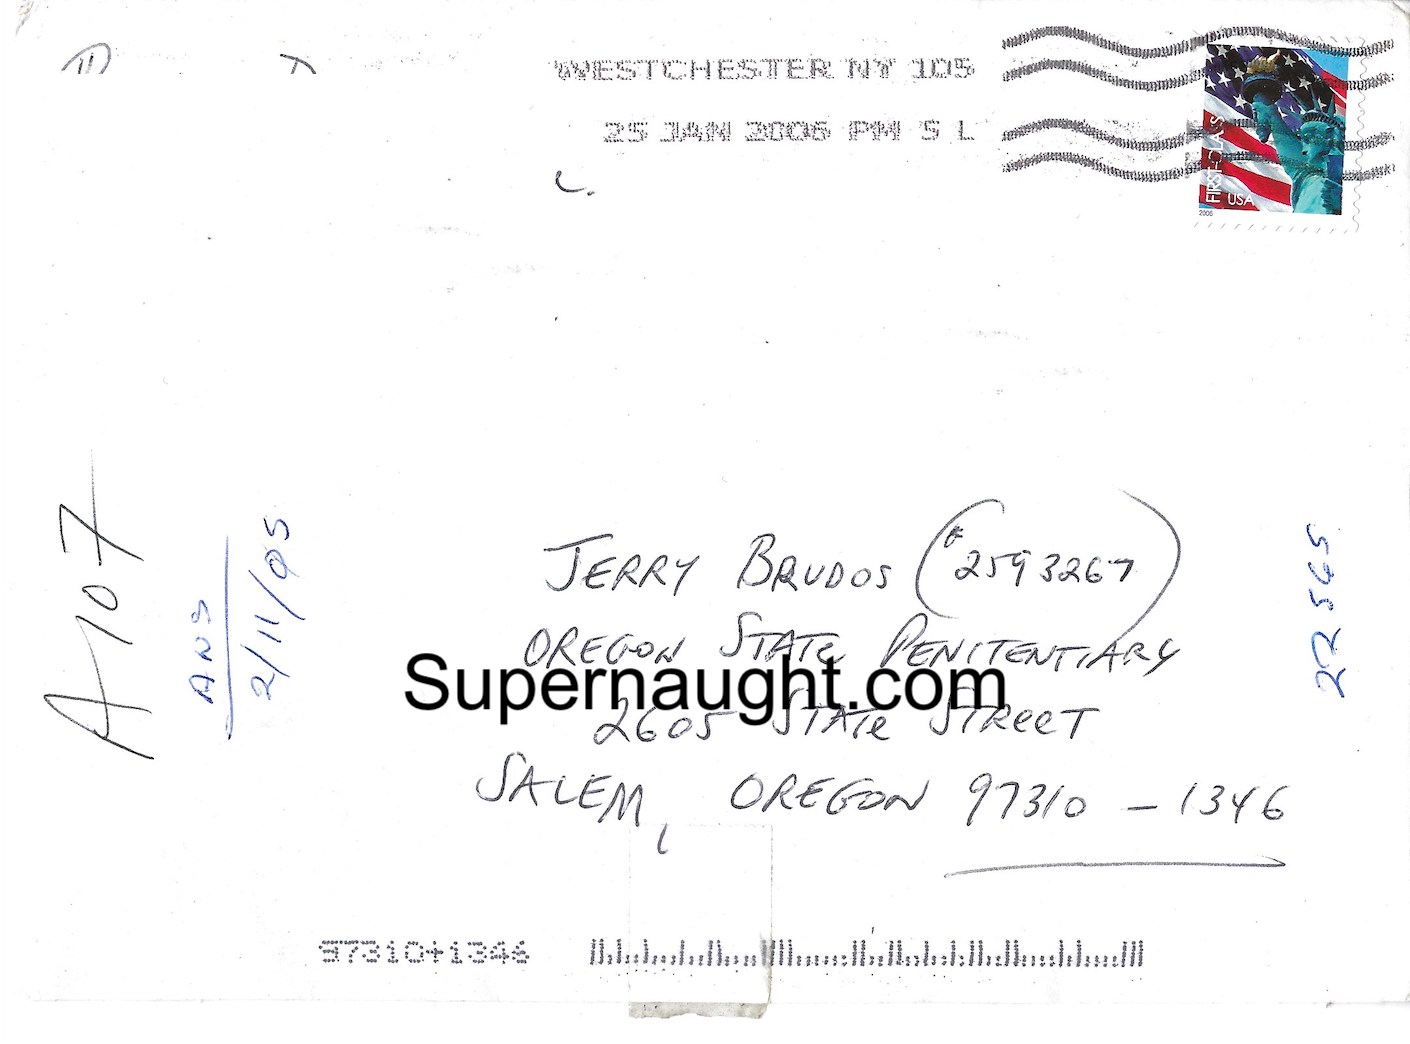 WESTCHESTER NY 105
25 JAN 2006 PM 5 L
FIRST-CLASS
USA
2006
A-107
ANS
2/11/05
JERRY BRUDOS (#2593267)
OREGON STATE PENITENTIARY
Supernaught.com
2605 STATE STREET
SALEM, OREGON 97310-1346
22565
97310+1346